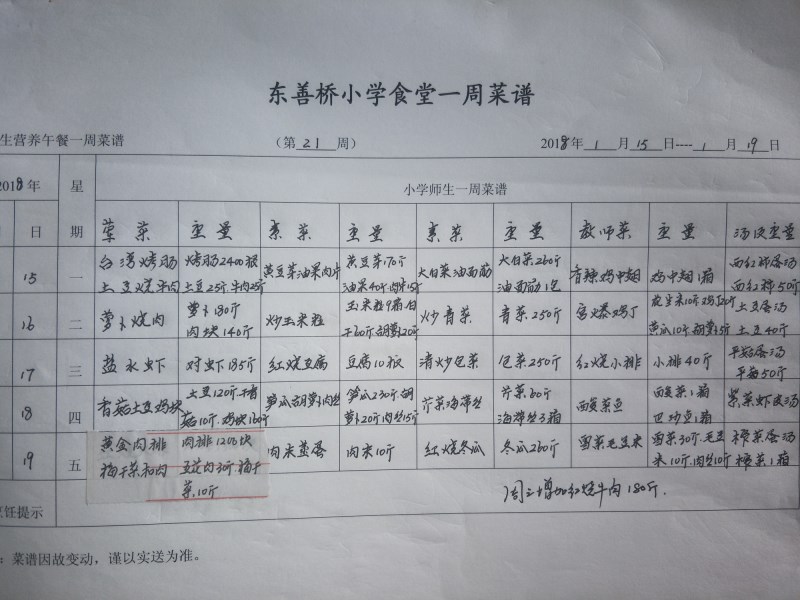 东善桥小学食堂一周菜谱
生营养午餐一周菜谱 （第 21 周） 2018年 1 月 15 日----1 月 19 日
2018年 星期 小学师生一周菜谱
日 荤菜 重量 素菜 重量 素菜 重量 教师菜 重量 汤及重量
15 一 台湾烤肠 烤肠2400根 黄豆芽油果肉片 黄豆芽170斤 大白菜油面筋 大白菜260斤 香辣鸡中翅 鸡中翅1箱 西红柿蛋汤
土豆烧牛肉 土豆25斤牛肉25斤 油果40斤肉片15斤 油面筋1包 西红柿50斤
16 二 萝卜烧肉 萝卜180斤 炒玉米粒 玉米粒9箱白 炒青菜 青菜250斤 宫爆鸡丁 花生米10斤鸡丁20斤 土豆蛋汤
肉块140斤 干60斤胡萝卜20斤 黄瓜10斤胡萝卜5斤 土豆40斤
17 三 盐水虾 对虾185斤 红烧豆腐 豆腐10板 清炒包菜 包菜250斤 红烧小排 小排40斤 平菇蛋汤
平菇50斤
18 四 香菇土豆鸡块 土豆120斤干香 笋瓜胡萝卜肉丝 笋瓜230斤胡 芹菜海带丝 芹菜80斤 酸菜豆 酸菜1箱 紫菜虾皮汤
菇10斤.鸡块160斤 萝卜20斤肉丝15斤 海带丝3箱 豆1箱
19 五 黄金肉排 肉排1208块 肉末蒸蛋 肉末10斤 红烧冬瓜 冬瓜260斤 雪菜毛豆米 雪菜30斤.毛豆 榨菜蛋汤
梅干菜扣肉 五花肉30斤.梅干 米10斤.肉丝10斤 榨菜1箱
菜10斤
烹饪提示 周三增加红烧牛肉180斤.
：菜谱因故变动，谨以实送为准。